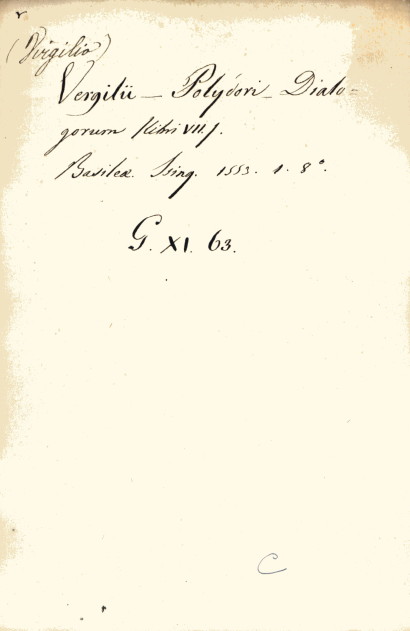 (Virgilio)
Vergilii - Polydori - Dialo-
gorum libri VII.
Basileæ. Ising. 1553. 1. 8°.
G. XI. 63.
C